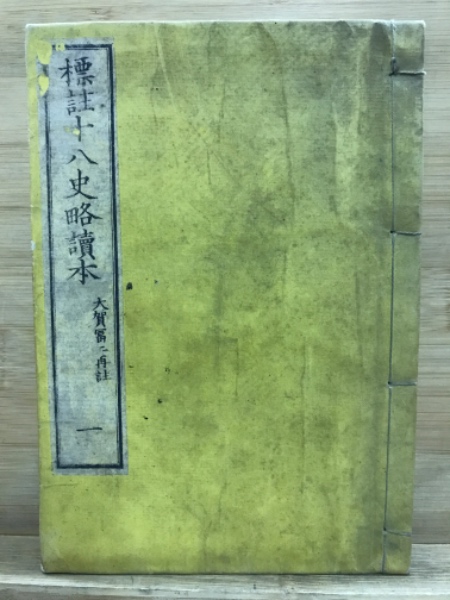 標註十八史略讀本
大賀富二再註
一